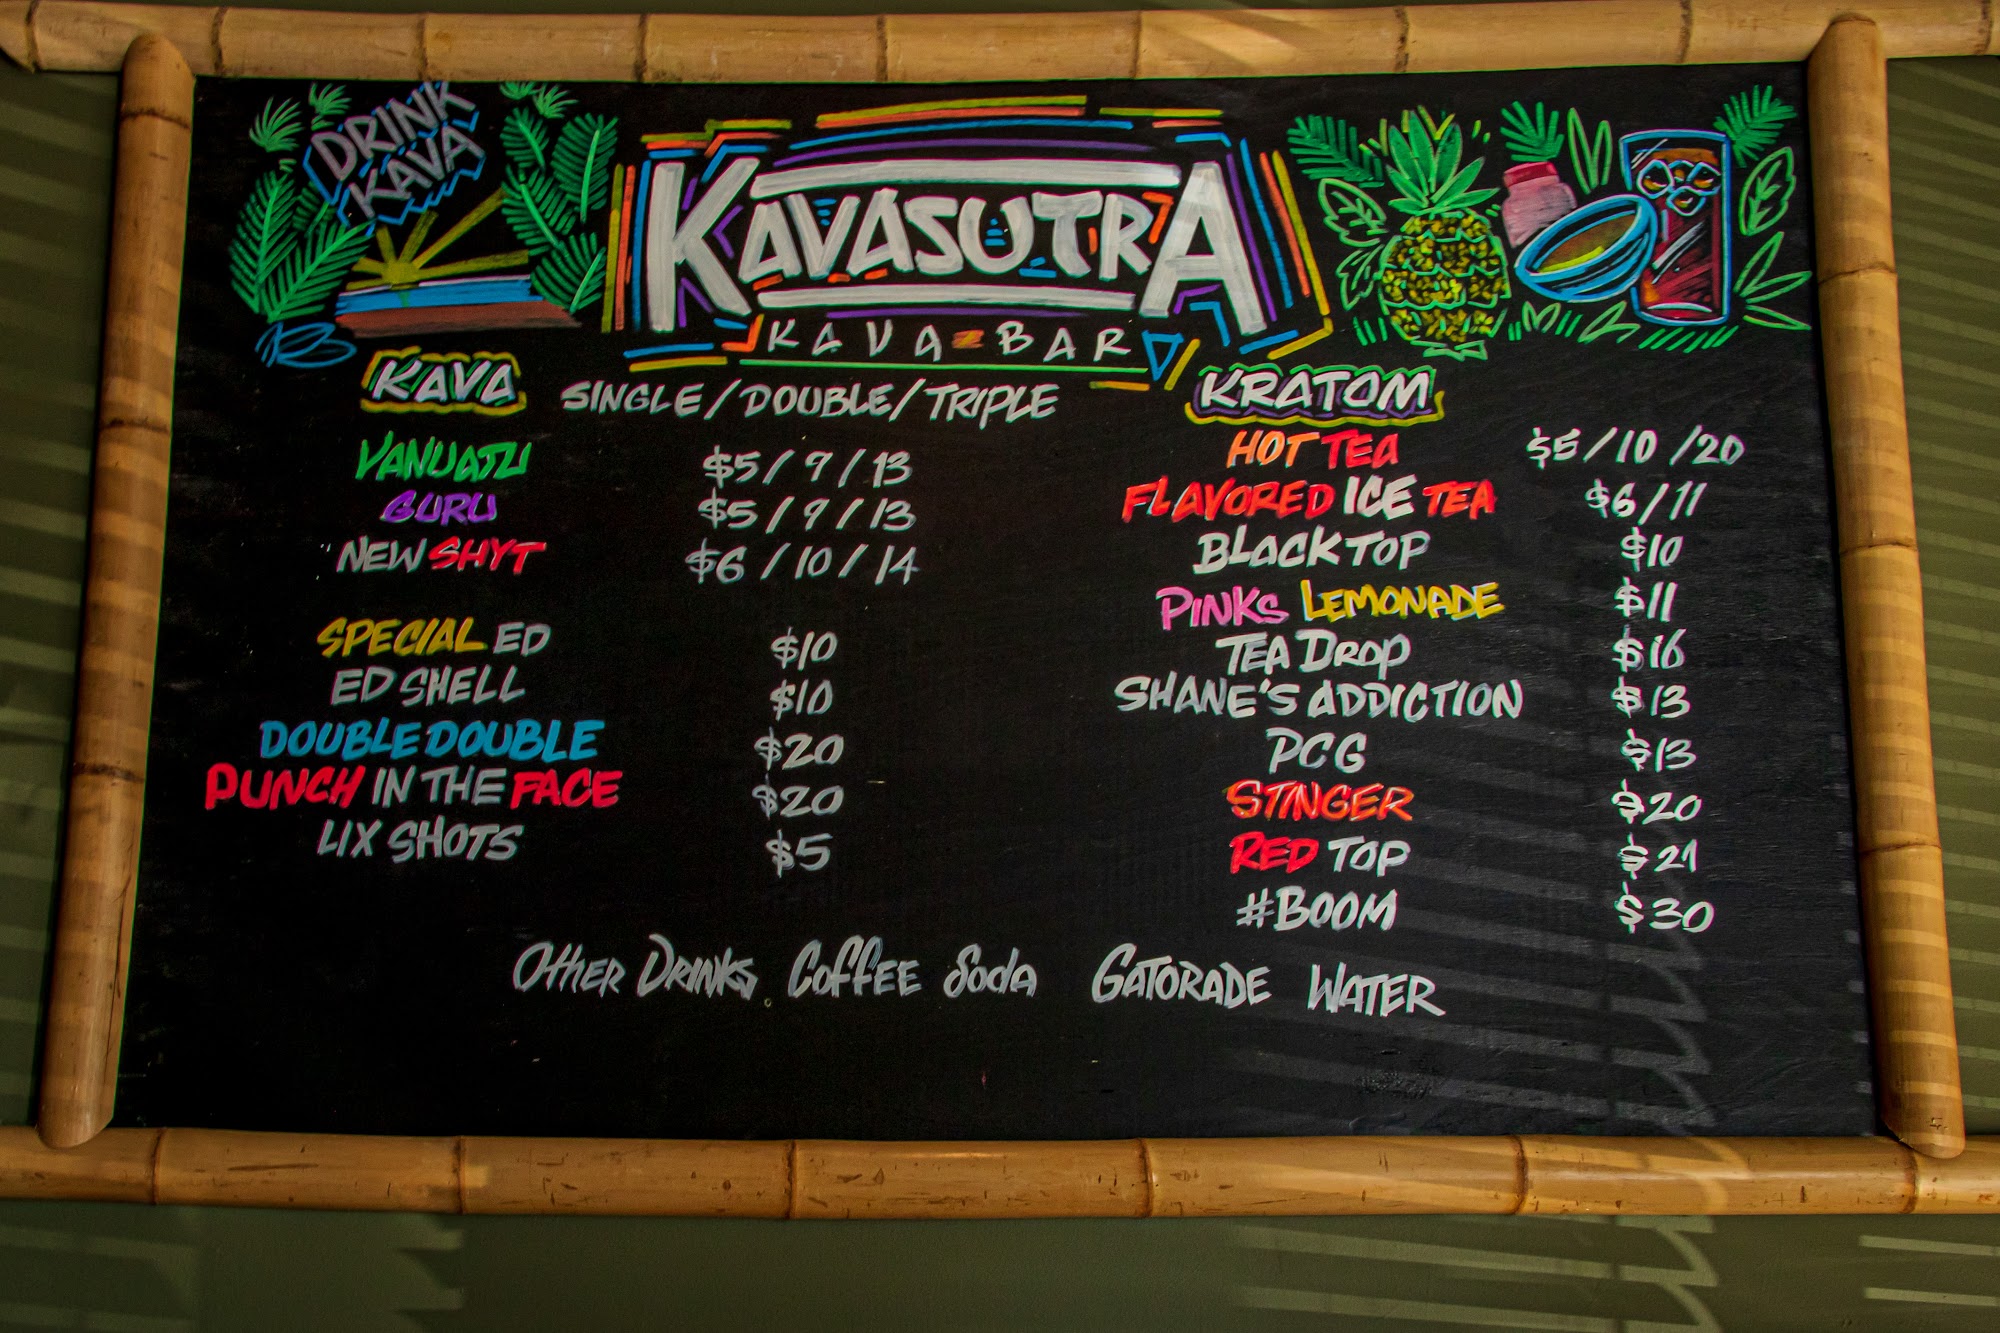 DRINK
KAVA
KAVASUTRA
KAVA BAR
KAVA SINGLE/DOUBLE/TRIPLE
VANUATU $5/9/13
GURU $5/9/13
NEW SHYT $6/10/14
SPECIAL ED $10
ED SHELL $10
DOUBLE DOUBLE $20
PUNCH IN THE FACE $20
LIX SHOTS $5
KRATOM
HOT TEA $5/10/20
FLAVORED ICE TEA $6/11
BLACKTOP $10
PINKS LEMONADE $11
TEA DROP $16
SHANE'S ADDICTION $13
PCG $13
STINGER $20
RED TOP $21
#BOOM $30
OTHER DRINKS COFFEE SODA GATORADE WATER